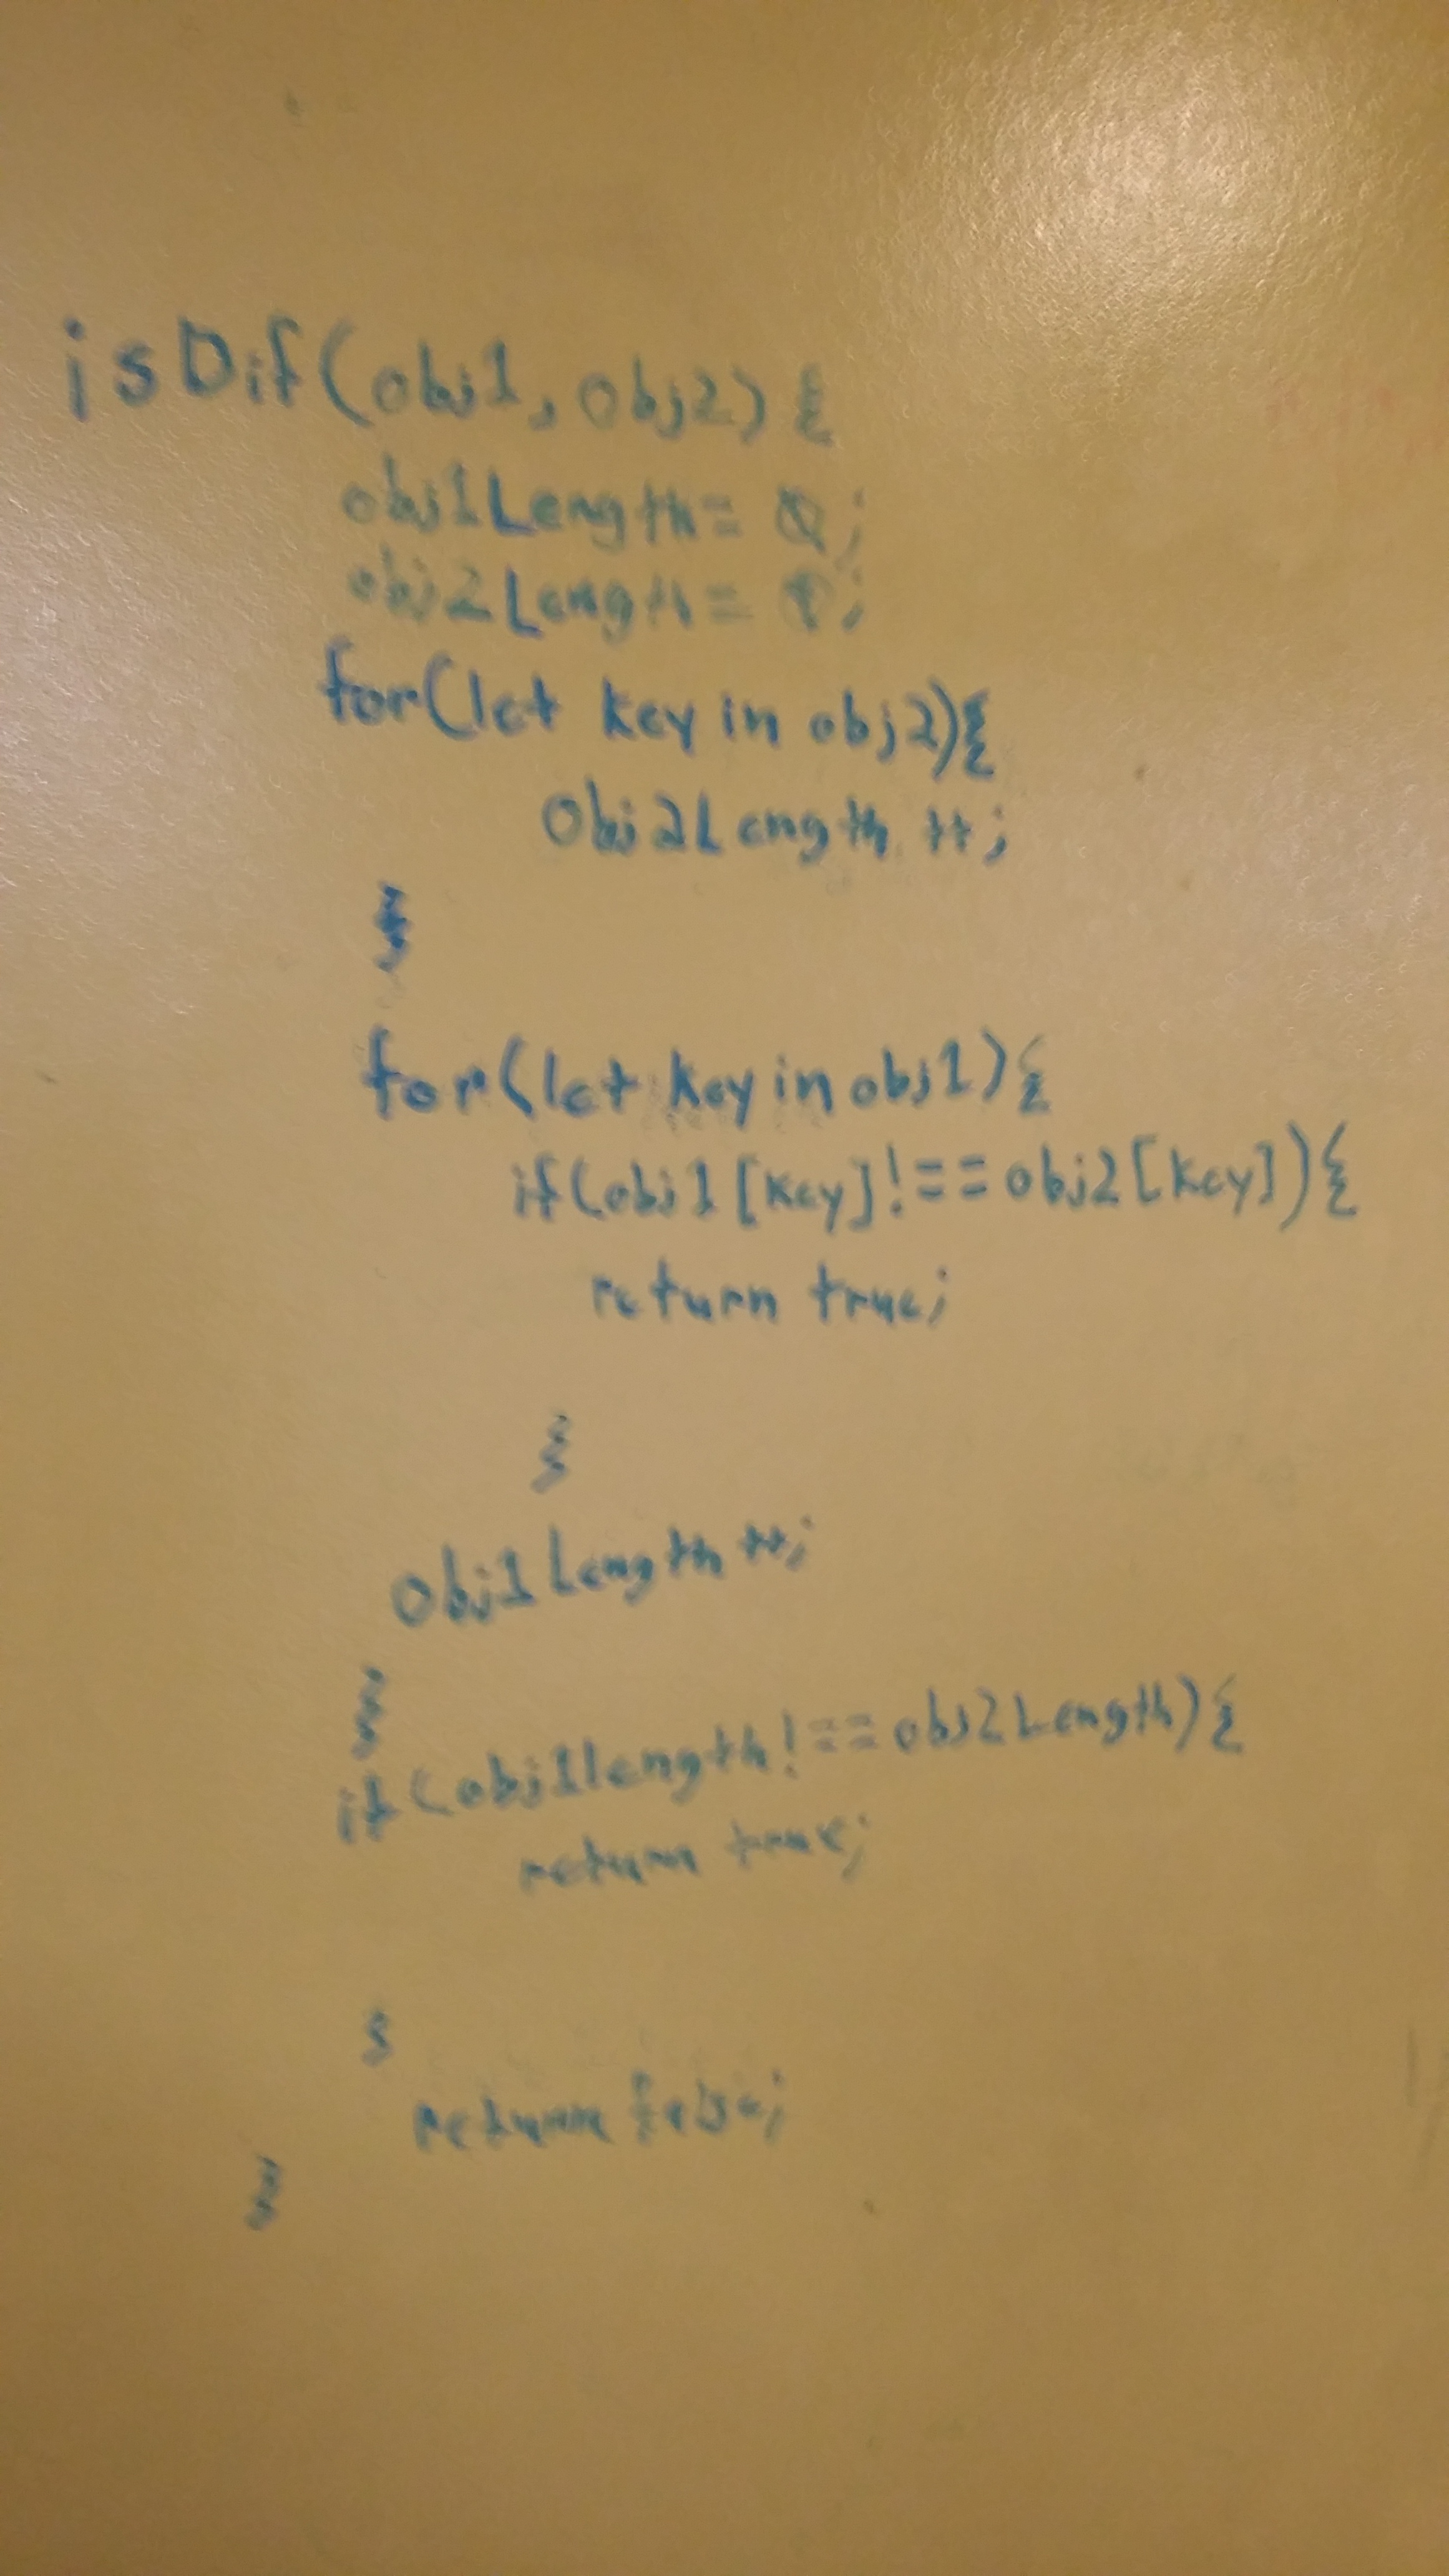 isDif(obj1, obj2) {
obj1Length = 0;
obj2Length = 0;
for(let key in obj2){
obj2Length ++;
}
for(let key in obj1){
if(obj1[key]!==obj2[key]){
return true;
}
obj1Length ++;
}
if (obj1length!==obj2Length){
return true;
}
return false;
}